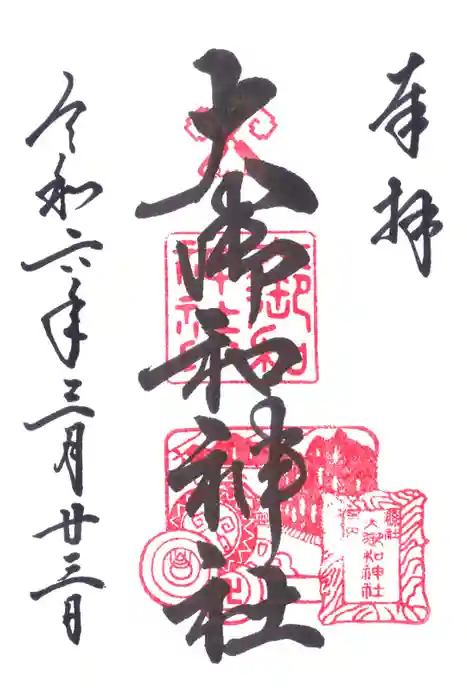 奉拝
大御和神社
縣社
大御和神社
令和六年三月廿三日